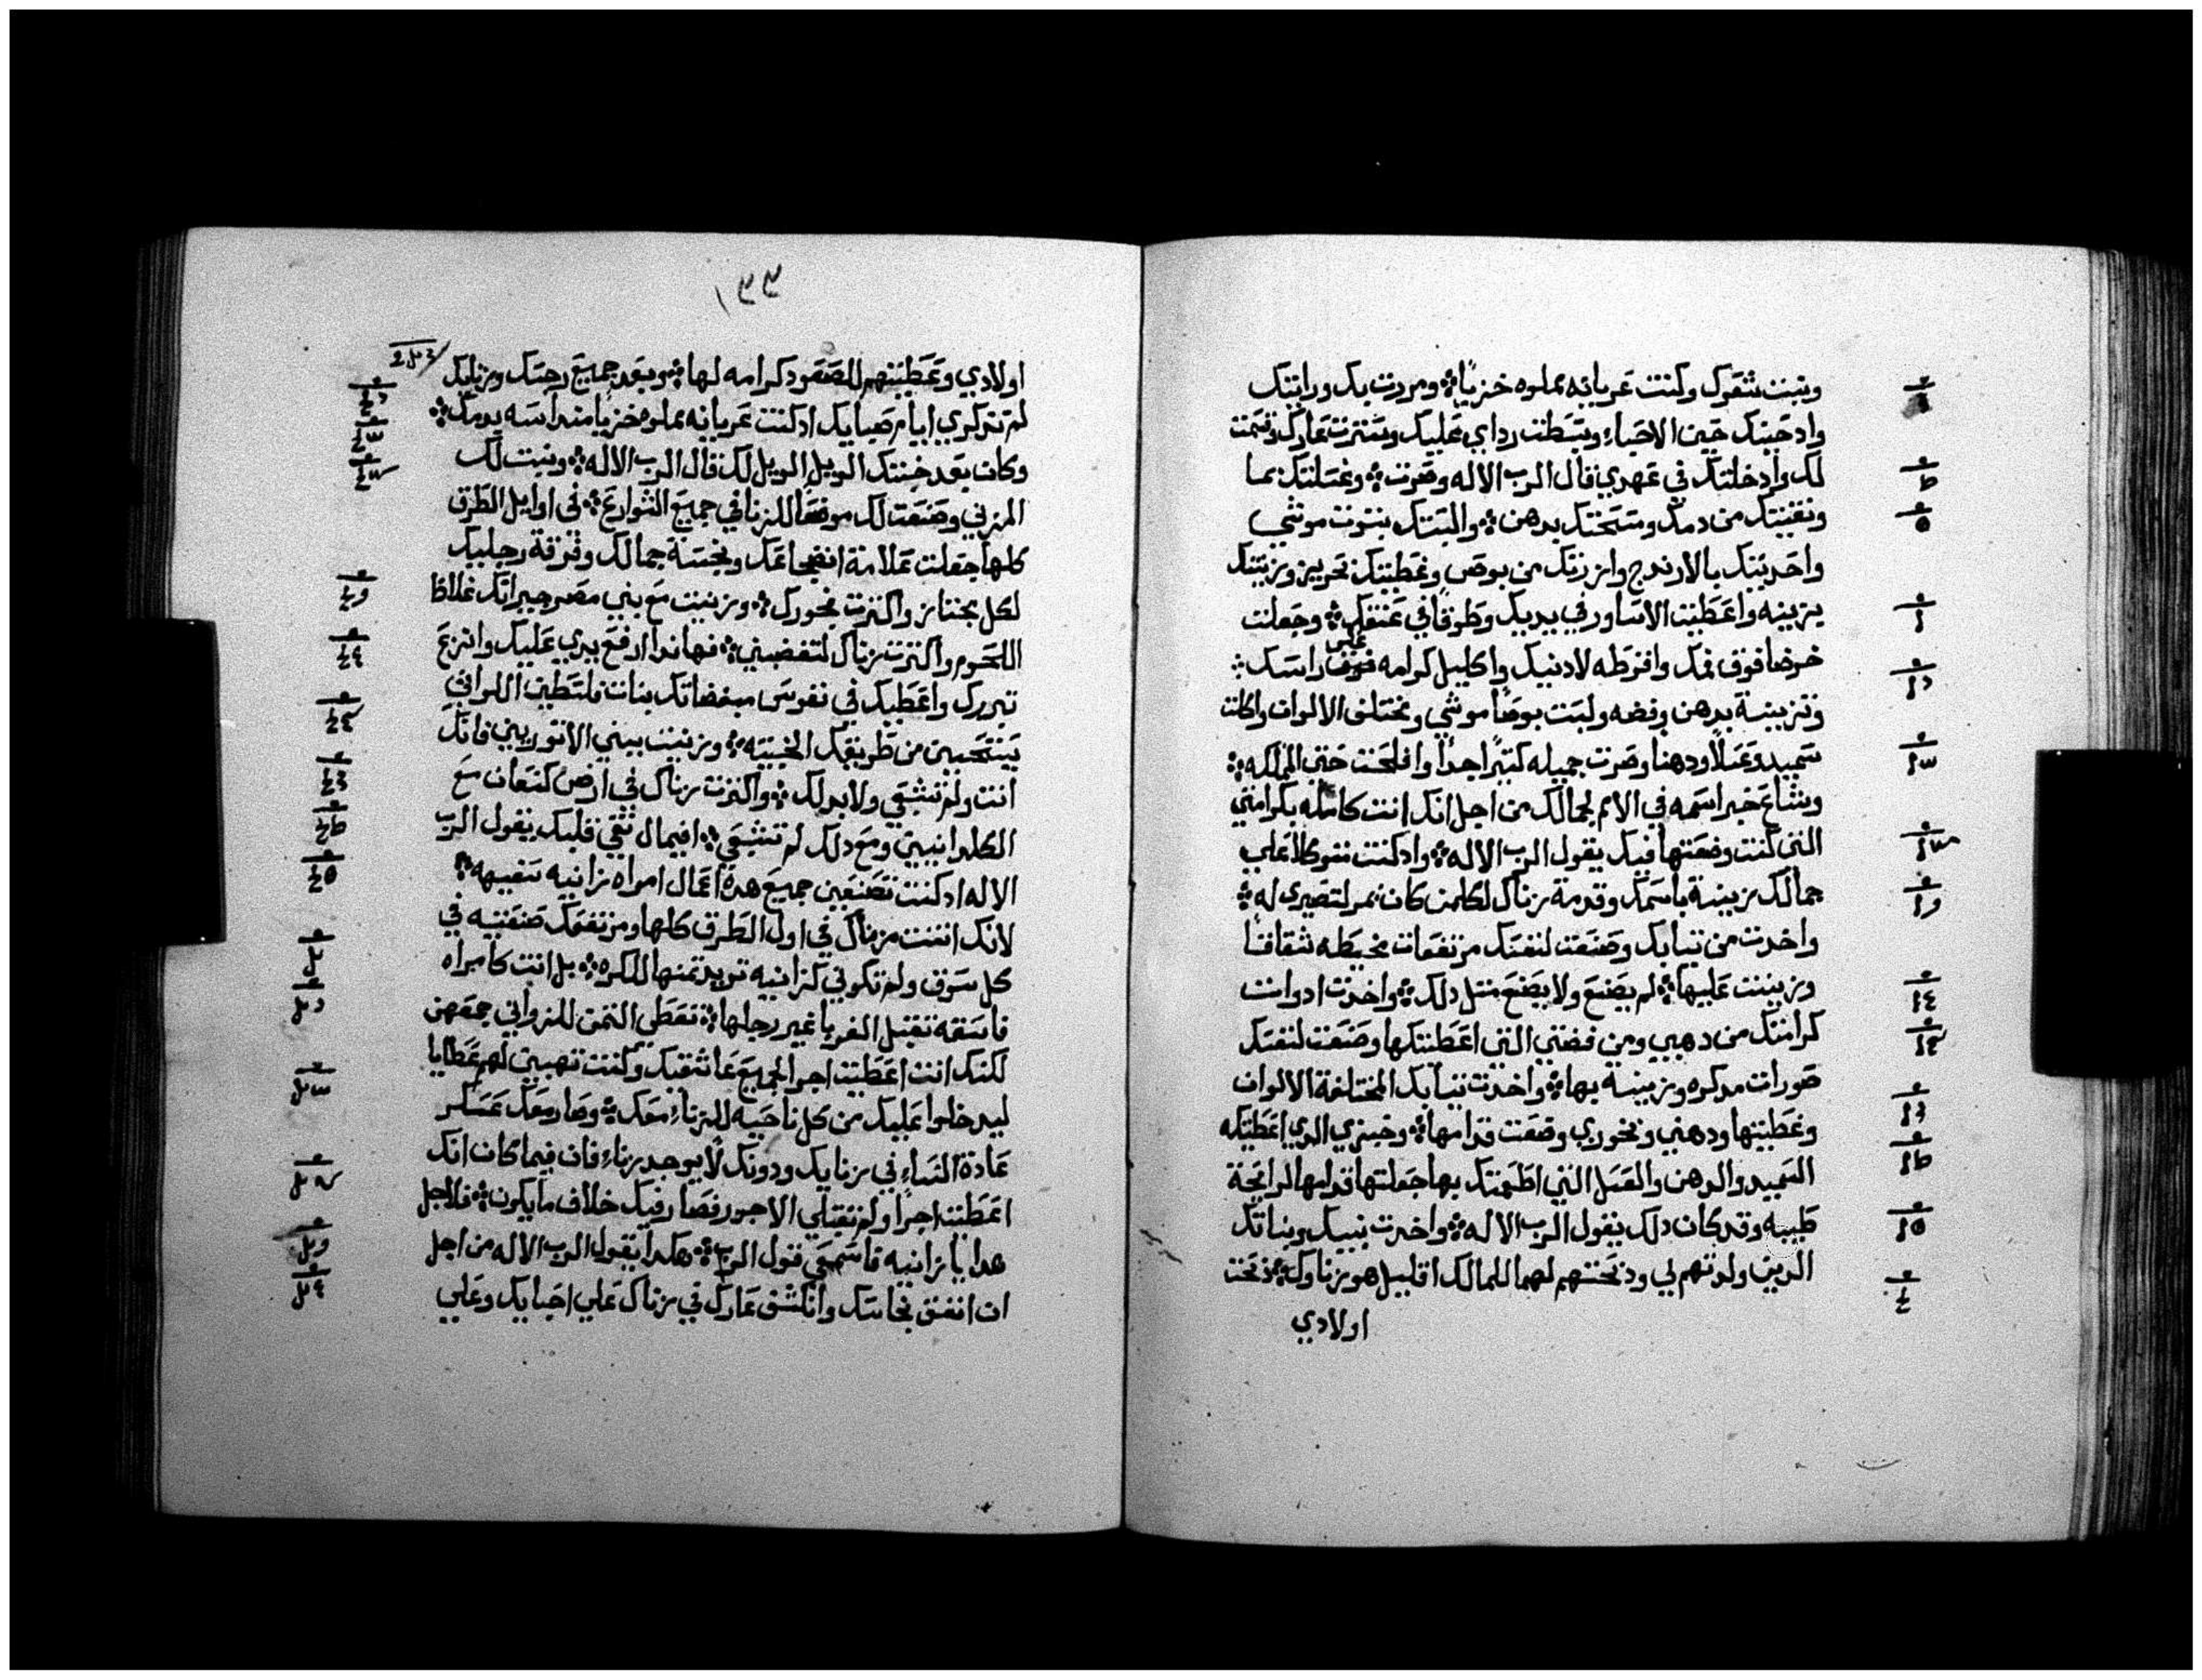 ونبت شعرك وكنت عريانه مملوه خزيًا ومررت بك ورايتك
واد حينك حين الاحباء وبسطت رداي عليك وسترت عارك وقسمت
لك وادخلتك في عهدي قال الرب الاله وصرت وغسلتك بما
ونقيتك من دمك ومسحتك بدهن والبستك بتوت موشي
واحديتك بالارندج وازرتك من بوص وغطيتك بحرير وزينتك
بزينه واعطيت الاساور في يديك وطوقًا في عنقك وجعلت
خرصا فوق فمك واقرطه لادنيك واكليل كرامه علي راسك
وتزينة بدهن وفضه ولبست بوصًا موشي ومختلف الالوان واكلت
سميد وعسلًا ودهنا وصرت جميله كتيرًا جدًا وافلحت حتي المملكه
وشاع خبر اسمه في الامم لجمالك من اجل انك انت كامله بكرامتي
التي كنت وضعتها فيك يقول الرب الاله واد كنت متوكلا علي
جمالك زينة باسمك وقدمة زناك لكلمن كان يمر لتصيري له
واخدت من تيابك وصنعت لنفسك مرتفعات مخيطه شقاقًا
وزنيت عليها لم يصنع ولا يصنع متل دلك واخدت ادوات
كرامتك من دهبي ومن فضتي التي اعطيتكها وصنعت لنفسك
صورات مدكره وزنيت بها واخدت تيابك المختلفة الالوان
وغطيتها ودهني وبخوري وضعت قدامها وخبزي الدي اعطيتكه
السميد والدهن والعسل التي اطعمتك بها جعلتها قدامها لرايحة
طيبه وقد كان دلك يقول الرب الاله واخدت بنيك وبناتك
الدين ولدتهم لي ودبحتهم لهما للمالك اقليل هو زناوك دبحت
اولادي
١٣٣
اولادي وعطيتهم للصعود كرامه لها وبعد جميع رجسك وزنايك
لم تدكري ايام صبايك اد كنت عريانه مملوه خزيًا منداسه بدمك
وكان بعد خبتك الويل الويل لك قال الرب الاله وبنيت لك
المزني وصنعت لك موضعًا للزنا في جميع الشوارع في اوايل الطرق
كلها جعلت علامة انضجاعك ونجسة جمالك وفرقة رجليك
لكل مجتاز واكترت فجورك وزنيت مع بني مصر جيرانك غلاظ
اللحوم واكترت زناك لتغضبيني فهاندا ارفع يدي عليك وانزع
تبررك واعطيك في نفوس مبغضاتك بنات فلسطين اللواتي
يستحيين من طريقك الخبيته وزنيت ببني الاتوريين فانك
انت ولم تشبعي ولا بدلك واكترت زناك في ارض كنعان مع
الكلدانيين ومع دلك لم تشبعي افيمال نقي قلبك يقول الرب
الاله اد كنت تصنعين جميع هده اعمال امراه زانيه سفيهه
لانك ابنيت مزناك في اول الطرق كلها ومرتفعك صنعتيه في
كل سوق ولم تكوني كزانيه تزيد تمنها للكره بل انت كامراه
فاسقه تقبل الغربا غير رجلها تعطي التمن للزواني جمعهن
لكنك انت اعطيت اجرا لجميع عاشقيك وكنت تهبين لهم عطايا
ليدخلوا عليك من كل ناحيه للزناء معك وصار معك عسكر
عادة النساء في زنايك ودونك لا يوجد زناء فان فيما كان انك
اعطيت اجرًا ولم تقبلي الاجور فصار فيك خلاف ما يكون فلاجل
هدا يا زانيه فاسمعي قول الرب هكدا يقول الرب الاله من اجل
ان انفق نحاسك وانكشف عارك في زناك علي احبايك وعلي